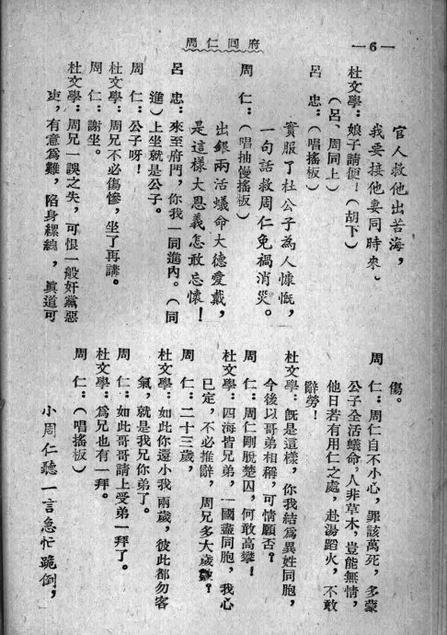 周仁回府
—6—
官人救他出苦海，
我要接他妻同時來。
杜文學：娘子請便！（胡下）
（呂、周同上）
呂　忠：（唱搖板）
實服了杜公子為人慷慨，
一句話救周仁免禍消災。
周　仁：（唱抽慢搖板）
出銀兩活蟻命大德愛戴，
是這樣大恩義怎敢忘懷！
呂　忠：來至府門，你我一同進內。（同
進）上坐就是公子。
周　仁：公子呀！
杜文學：周兄不必傷慘，坐了再講。
周　仁：謝坐。
杜文學：周兄一誤之失，可恨一般奸黨惡
吏，有意爲難，陷身縲絏，眞道可
傷。
周　仁：周仁自不小心，罪該萬死，多蒙
公子全活蟻命，人非草木，豈能無情，
他日若有用仁之處，赴湯蹈火，不敢
辭勞！
杜文學：旣是這樣，你我結爲異姓同胞，
今後以哥弟相稱，可情願否？
周　仁：周仁剛脫楚囚，何敢高攀！
杜文學：四海皆兄弟，一國盡同胞，我心
已定，不必推辭，周兄多大歲數？
周　仁：二十三歲，
杜文學：如此你還小我兩歲，彼此都勿客
氣，就是我兄你弟了。
周　仁：如此哥哥請上受弟一拜了。
杜文學：爲兄也有一拜。
周　仁：（唱搖板）
小周仁聽一言急忙跪倒，